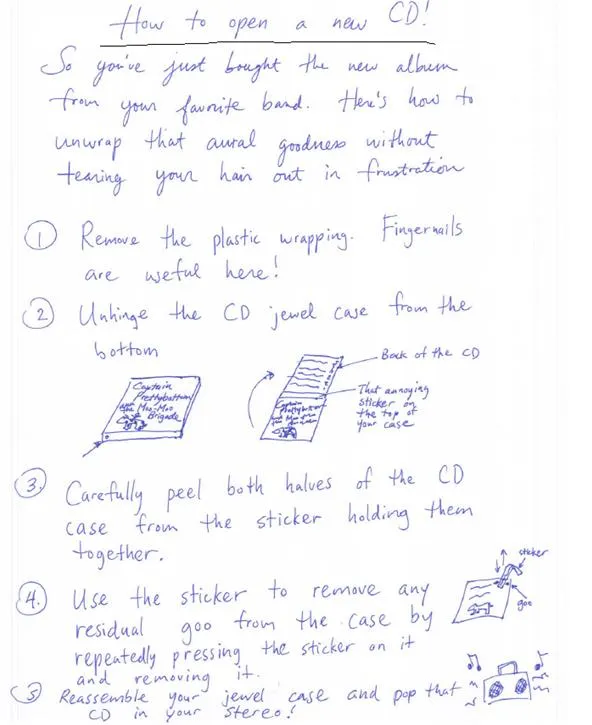 How to open a new CD!
So you've just bought the new album
from your favorite band. Here's how to
unwrap that aural goodness without
tearing your hair out in frustration
1 Remove the plastic wrapping. Fingernails
are useful here!
2 Unhinge the CD jewel case from the
bottom
Captain
Prettybottom
and the Moo-Moo
Brigade
Back of the CD
That annoying
sticker on
the top of
your case
Captain
Prettybottom
3. Carefully peel both halves of the CD
case from the sticker holding them
together.
4. Use the sticker to remove any
residual goo from the case by
repeatedly pressing the sticker on it
and removing it.
sticker
goo
5 Reassemble your jewel case and pop that
CD in your stereo!